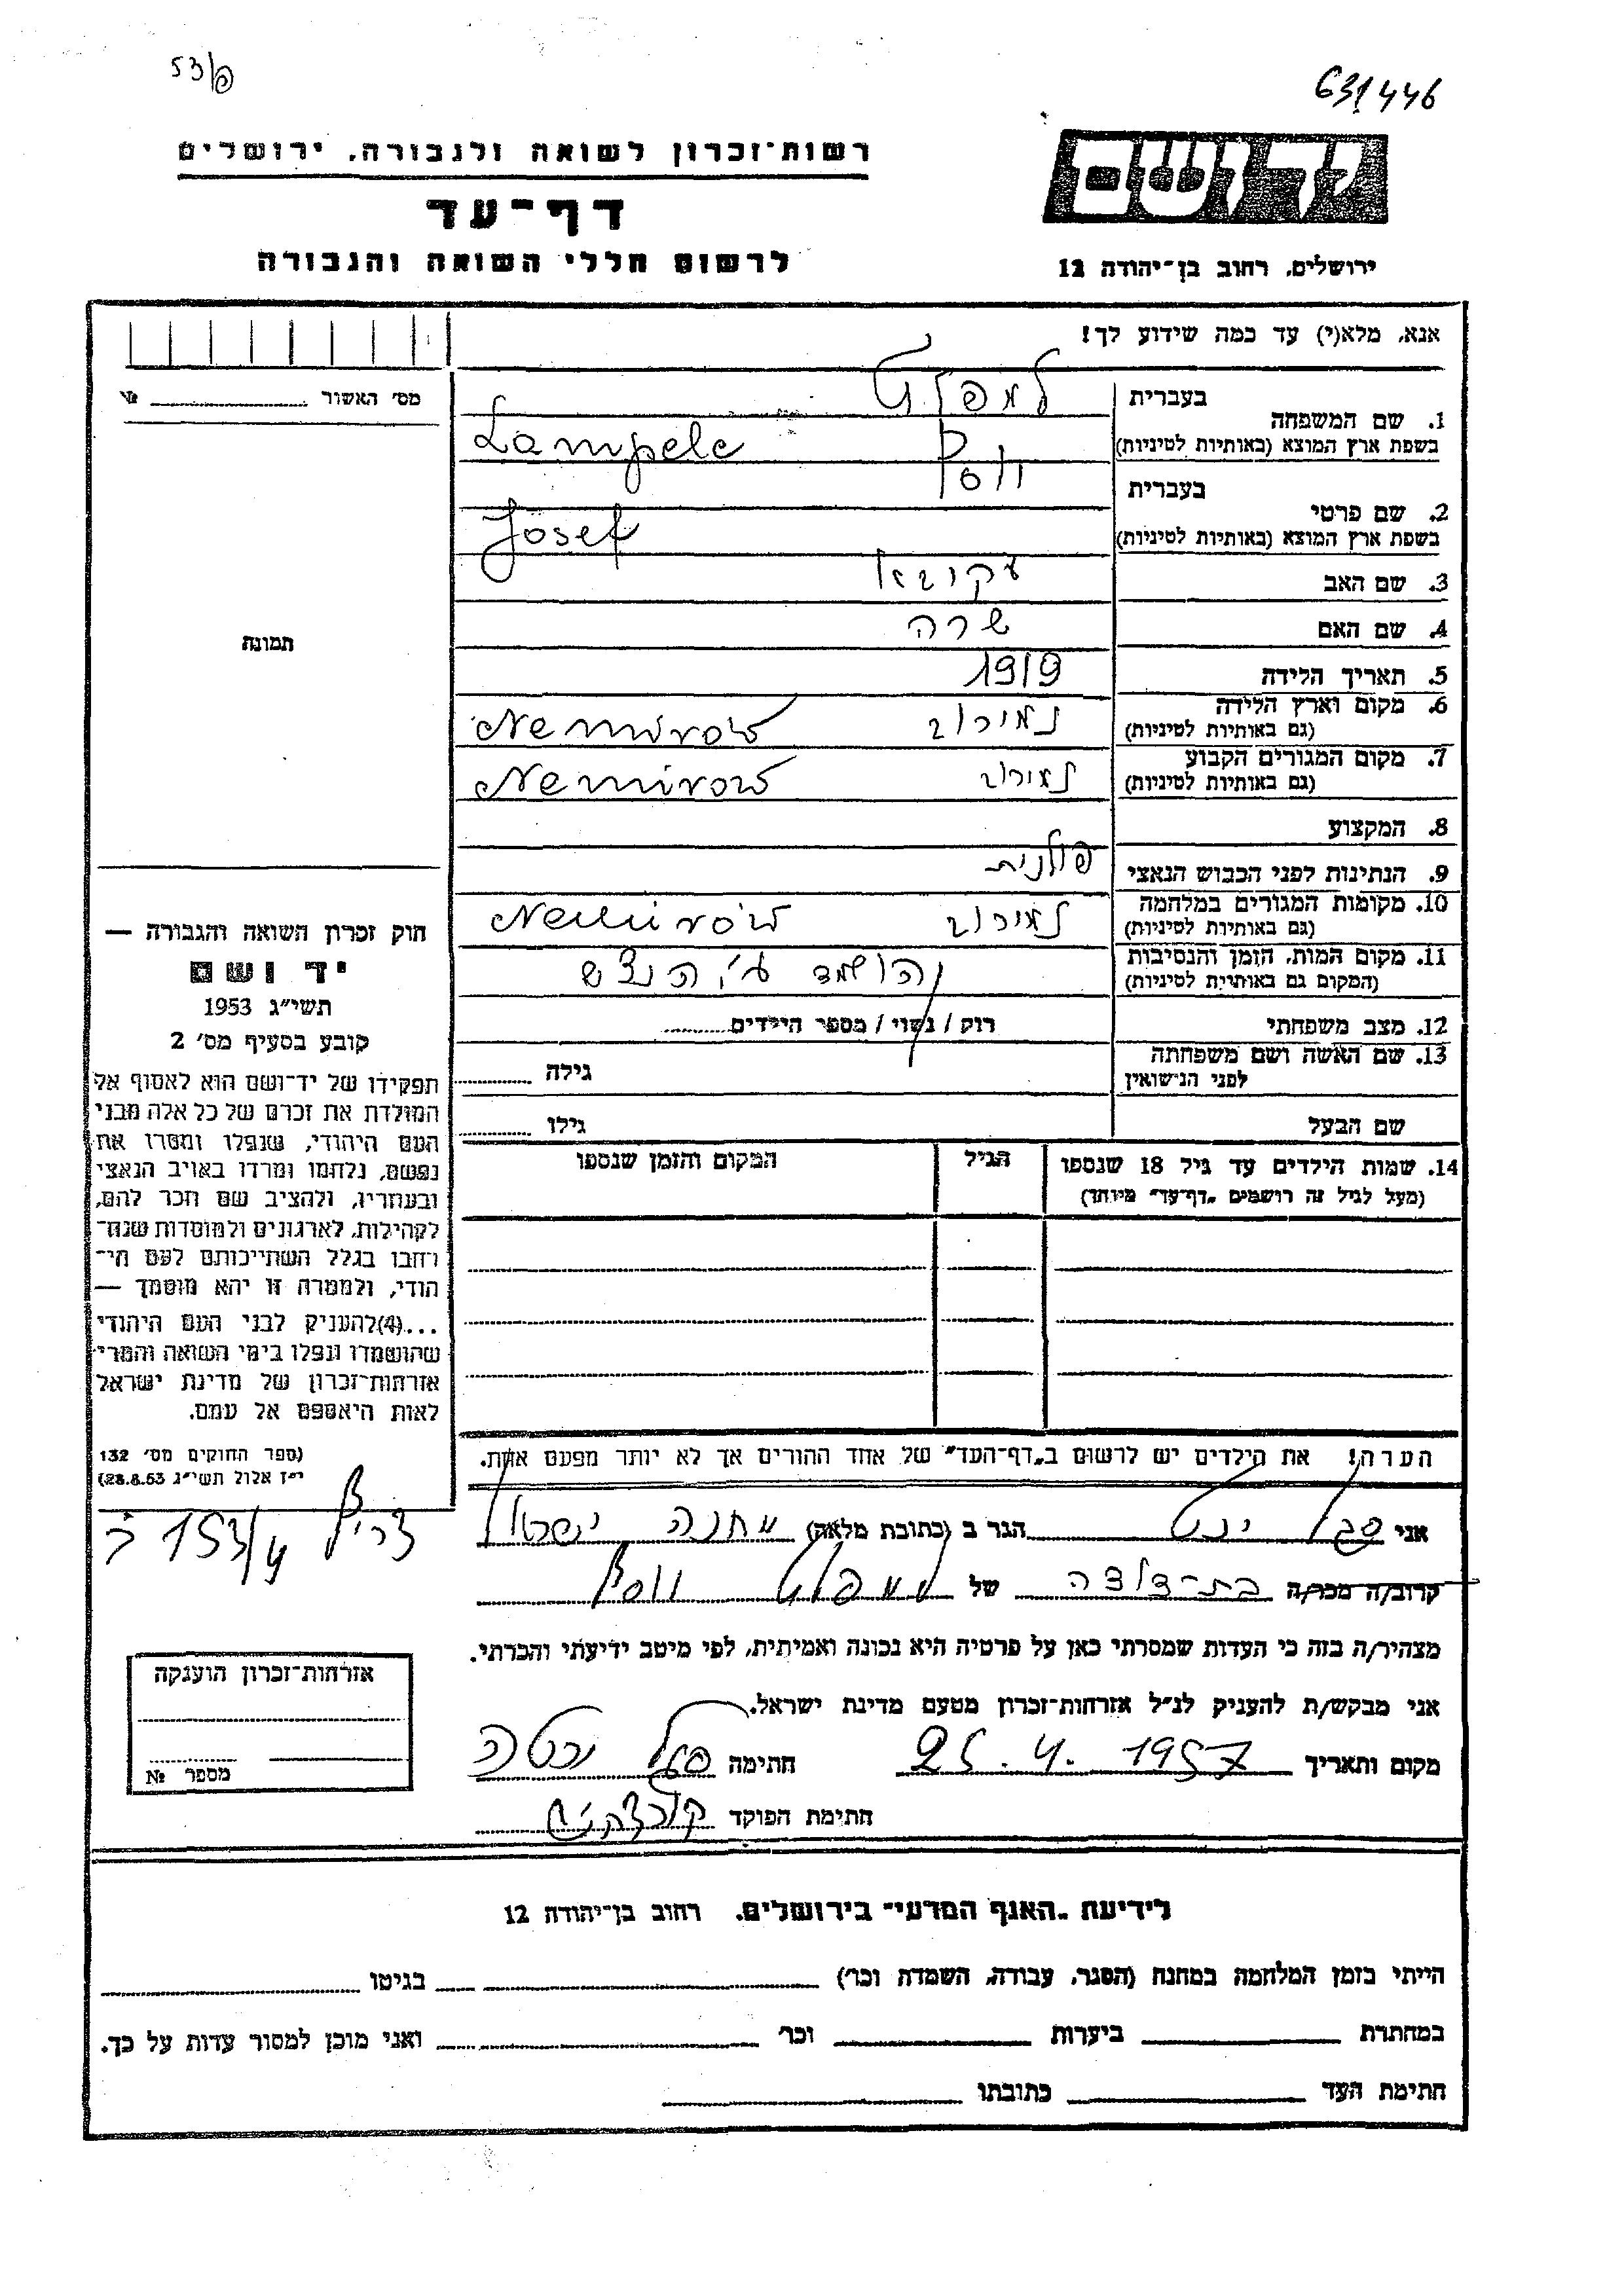 53/פ
631446
רשות־זכרון לשואה ולגבורה, ירושלים
דף־עד
לרשום חללי השואה והגבורה
יד ושם
ירושלים, רחוב בן־יהודה 12
אנא, מלא(י) עד כמה שידוע לך!
מס׳ האשור №
1. שם המשפחה
בעברית
בשפת ארץ המוצא (באותיות לטיניות) Lampele
2. שם פרטי
בעברית יוסף
בשפת ארץ המוצא (באותיות לטיניות) Josef
3. שם האב
4. שם האם שרה
5. תאריך הלידה 1919
6. מקום וארץ הלידה נמירוב Nemirów
(גם באותיות לטיניות)
7. מקום המגורים הקבוע נמירוב Nemirów
(גם באותיות לטיניות)
8. המקצוע
9. הנתינות לפני הכבוש הנאצי פולנית
10. מקומות המגורים במלחמה נמירוב Nemirów
(גם באותיות לטיניות)
11. מקום המות, הזמן והנסיבות הושמד ע״י
(המקום גם באותיות לטיניות)
12. מצב משפחתי רוק / נשוי / מספר הילדים
13. שם האשה ושם משפחתה
לפני הנישואין גילה
שם הבעל גילו
14. שמות הילדים עד גיל 18 שנספו
(מעל לגיל זה רושמים „דף־עד״ מיוחד)
הגיל
המקום והזמן שנספו
תמונה
חוק זכרון השואה והגבורה —
יד ושם
תשי״ג 1953
קובע בסעיף מס׳ 2
תפקידו של יד־ושם הוא לאסוף אל
המולדת את זכרם של כל אלה מבני
העם היהודי, שנפלו ומסרו את
נפשם, נלחמו ומרדו באויב הנאצי
ובעוזריו, ולהציב שם וזכר להם,
לקהילות, לארגונים ולמוסדות שנח־
רבו בגלל השתייכותם לעם הי־
הודי, ולמטרה זו יהא מוסמך —
...(4) להעניק לבני העם היהודי
שהושמדו ונפלו בימי השואה והמרי
אזרחות־זכרון של מדינת ישראל
לאות היאספם אל עמם.
(ספר החוקים מס׳ 132
י״ז אלול תשי״ג 28.8.53)
הערה! את הילדים יש לרשום ב„דף־העד״ של אחד ההורים אך לא יותר מפעם אחת.
אני הגר ב (כתובת מלאה) מחנה ישראל
צריף 153/4
קרוב/ה מכר/ה בת־דודה של יוסף
מצהיר/ה בזה כי העדות שמסרתי כאן על פרטיה היא נכונה ואמיתית, לפי מיטב ידיעתי והכרתי.
אני מבקש/ת להעניק לנ״ל אזרחות־זכרון מטעם מדינת ישראל.
מקום ותאריך 25.4.1957 חתימה
חתימת הפוקד
אזרחות־זכרון הוענקה
מספר №
לידיעת „האגף המדעי״ בירושלים, רחוב בן־יהודה 12
הייתי בזמן המלחמה במחנה (הסגר, עבודה, השמדה וכר׳) בגיטו
במחתרת ביערות וכר׳ ואני מוכן למסור עדות על כך.
חתימת העד כתובתו